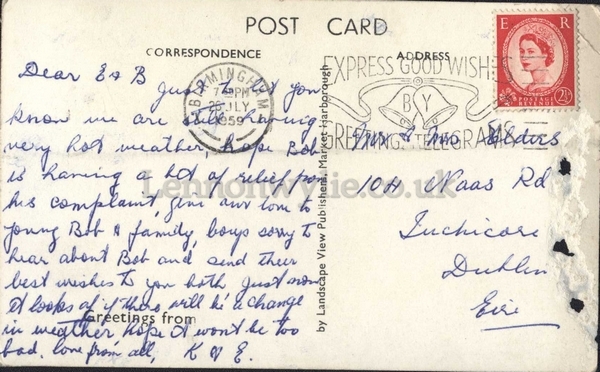 POST CARD
CORRESPONDENCE
ADDRESS
E R
POSTAGE
REVENUE
2½D
BIRMINGHAM
7 PM
JLY
1959
EXPRESS GOOD WISHES
BY
GREETINGS TELEGRAMS
Dear E & B
Just to let you
know we are still having
very hot weather, hope Bob
is having a bit of relief from
his complaint, give our love to
young Bob & family, boys sorry to
hear about Bob and send their
best wishes to you both just now
it looks as if there will be a change
in weather hope it won't be too
bad, love from all, K & E.
Greetings from
by Landscape View Publishers, Market Harborough
Mr & Mrs
104 Naas Rd
Inchicore
Dublin
Eire
Lennonwylie.co.uk